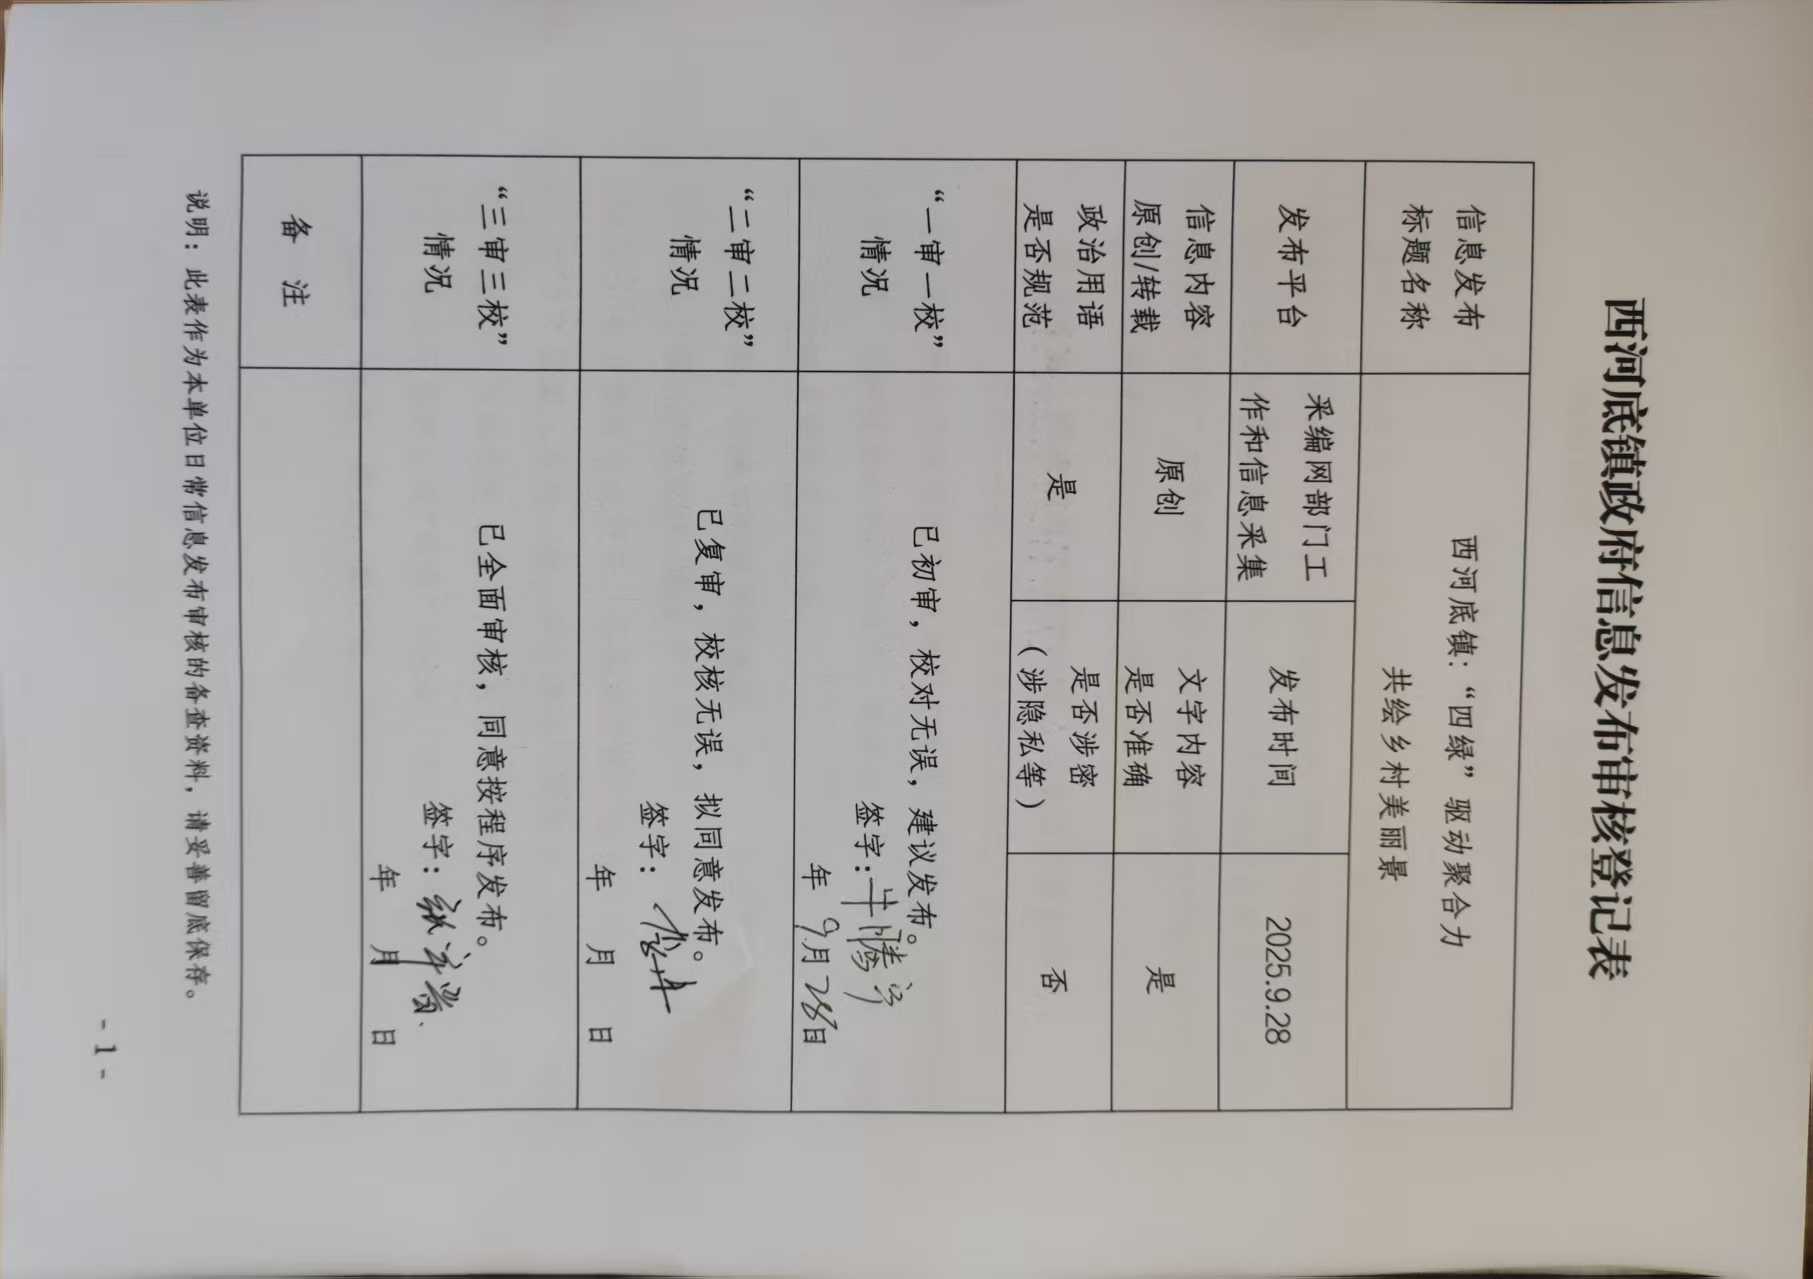 西河底镇政府信息发布审核登记表
信息发布
标题名称
西河底镇：“四绿”驱动聚合力
共绘乡村美丽景
发布平台
采编网部门工
作和信息采集
发布时间
2025.9.28
信息内容
原创/转载
原创
文字内容
是否准确
是
政治用语
是否规范
是
是否涉密
（涉隐私等）
否
“一审一校”
情况
已初审，校对无误，建议发布。
签字：
年 9月28日
“二审二校”
情况
已复审，校核无误，拟同意发布。
签字：
年 月 日
“三审三校”
情况
已全面审核，同意按程序发布。
签字：
年 月 日
备 注
说明：此表作为本单位日常信息发布审核的备查资料，请妥善留底保存。
- 1 -